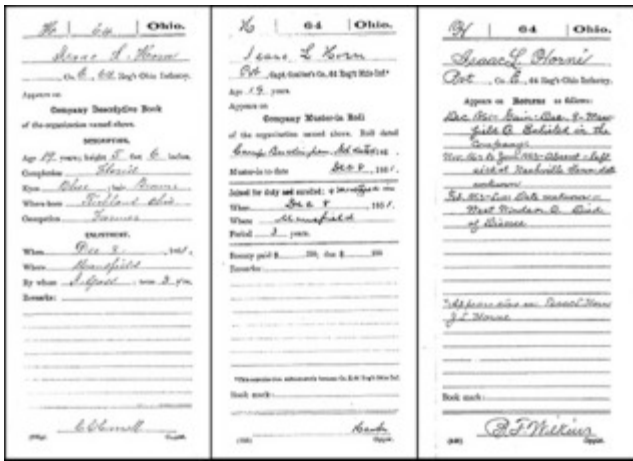 H 64 Ohio.
Isaac L. Horn
Co. E, 64 Reg't Ohio Infantry.
Appears on
Company Descriptive Book
of the organization named above.
DESCRIPTION.
Age 19 years; height 5 feet 6 inches.
Complexion Florid
Eyes Blue; hair Brown
Where born Richland Ohio
Occupation Farmer
ENLISTMENT.
When Dec 2, 1861.
Where Mansfield
By whom term 3 y'rs.
Remarks:
Copyist.
H 64 Ohio.
Isaac L Horn
Pvt, Capt. Co., 64 Reg't Ohio Inf.*
Age 19 years.
Appears on
Company Muster-in Roll
of the organization named above. Roll dated
Camp Buckingham
Muster-in to date Dec 8, 1861.
Joined for duty and enrolled:
When Dec 8, 1861.
Where Mansfield
Period 3 years.
Bounty paid $ 100; due $ 100
Remarks:
*This organization subsequently became Co. E, 64 Reg't Ohio Inf.
Book mark:
Copyist.
H 64 Ohio.
Isaac L. Horne
Pvt, Co. E, 64 Reg't Ohio Infantry.
Appears on Returns as follows:
Enlisted in the
Company
Absent left
sick at Nashville Tenn date
unknown
Date unknown
West Windsor O. Died
of Disease
J L Horne
Book mark:
B. F. Wilkins
Copyist.